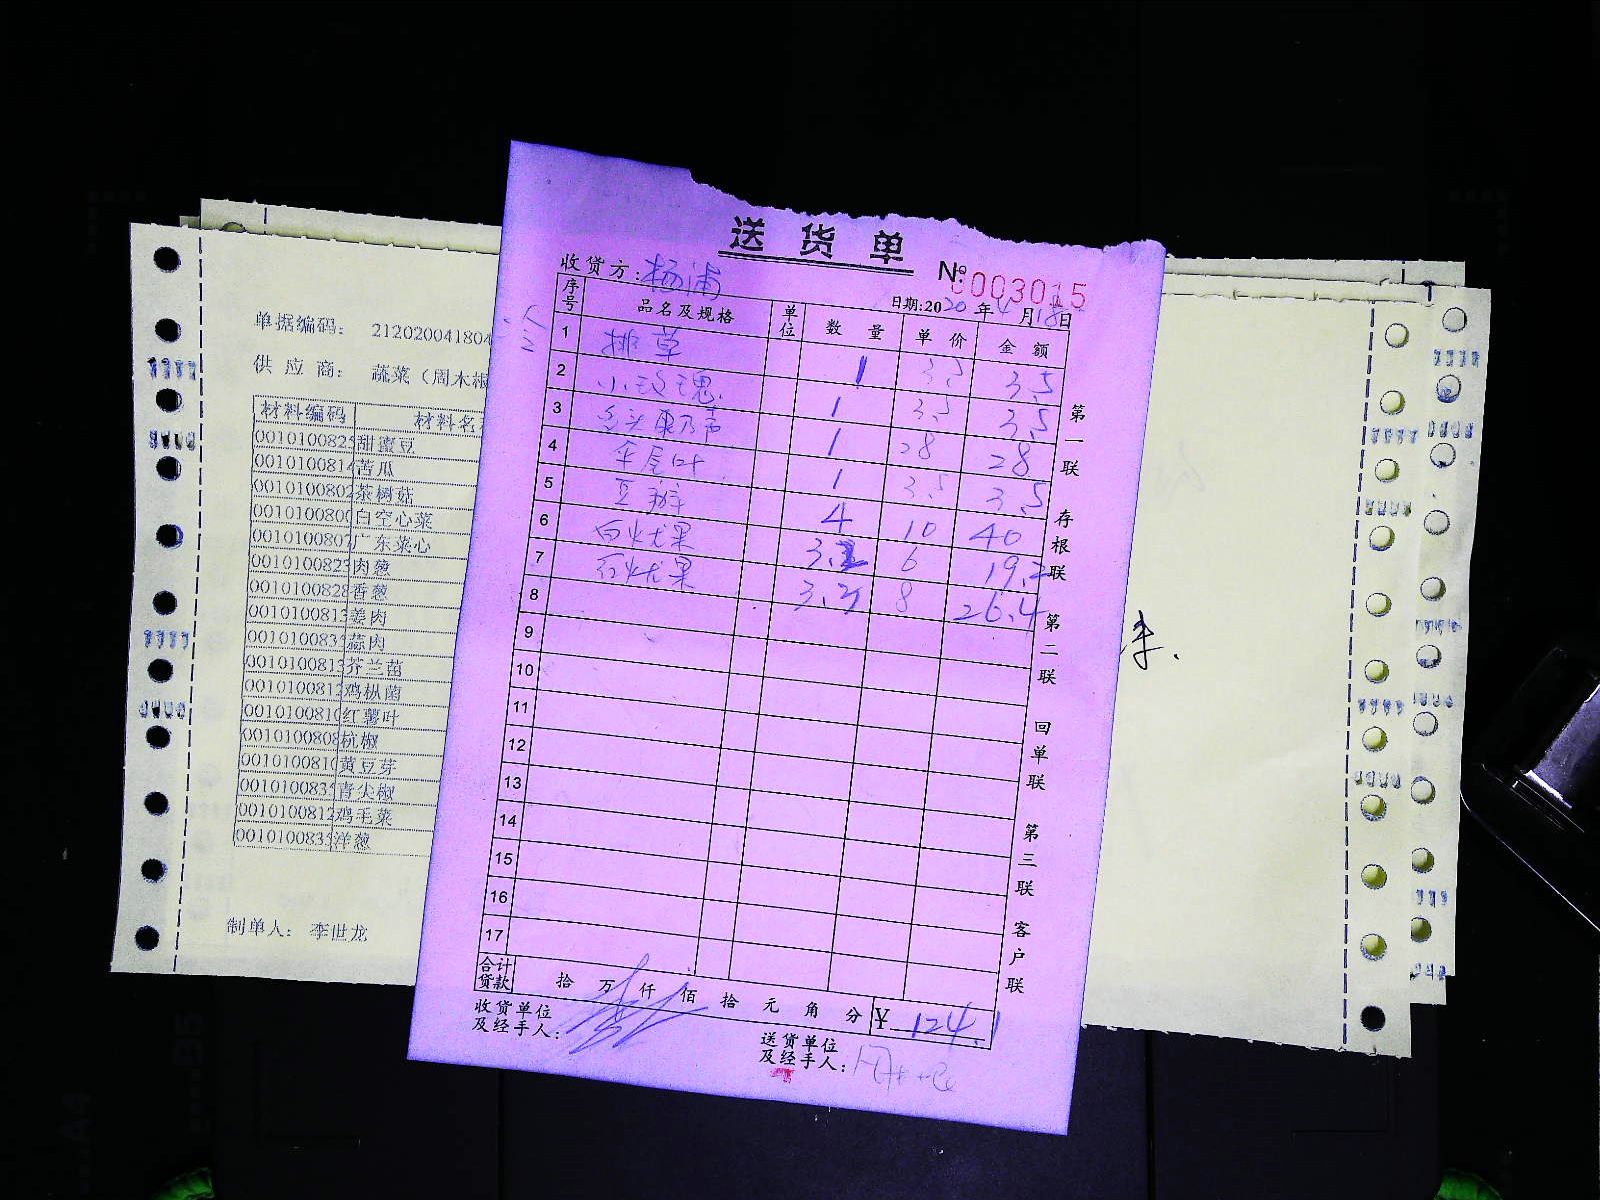 送货单
№ 0003015
收货方: 杨浦
日期:2020年4月18日
序号 品名及规格 单位 数量 单价 金额
1 排草 1 3.5 3.5
2 小玫瑰 1 3.5 3.5
3 多头康乃声 1 28 28
4 伞尾叶 1 3.5 3.5
5 豆瓣 4 10 40
6 白火龙果 3.2 6 19.2
7 红火龙果 3.3 8 26.4
8
9
10
11
12
13
14
15
16
17
合计货款 拾 万 仟 佰 拾 元 角 分 ¥ 124.1
收货单位及经手人:
送货单位及经手人:
第一联 存根联 第二联 回单联 第三联 客户联
单据编码: 212020041804
供应商: 蔬菜(周木根
材料编码 材料名
0010100825 甜蜜豆
001010081 苦瓜
001010080 茶树菇
001010080 白空心菜
001010080 广东菜心
001010082 肉葱
0010100828 香葱
001010081 姜肉
001010083 蒜肉
001010081 芥兰苗
001010081 鸡枞菌
001010081 红薯叶
001010080 杭椒
001010081 黄豆芽
001010083 青尖椒
001010081 鸡毛菜
001010083 洋葱
制单人: 李世龙